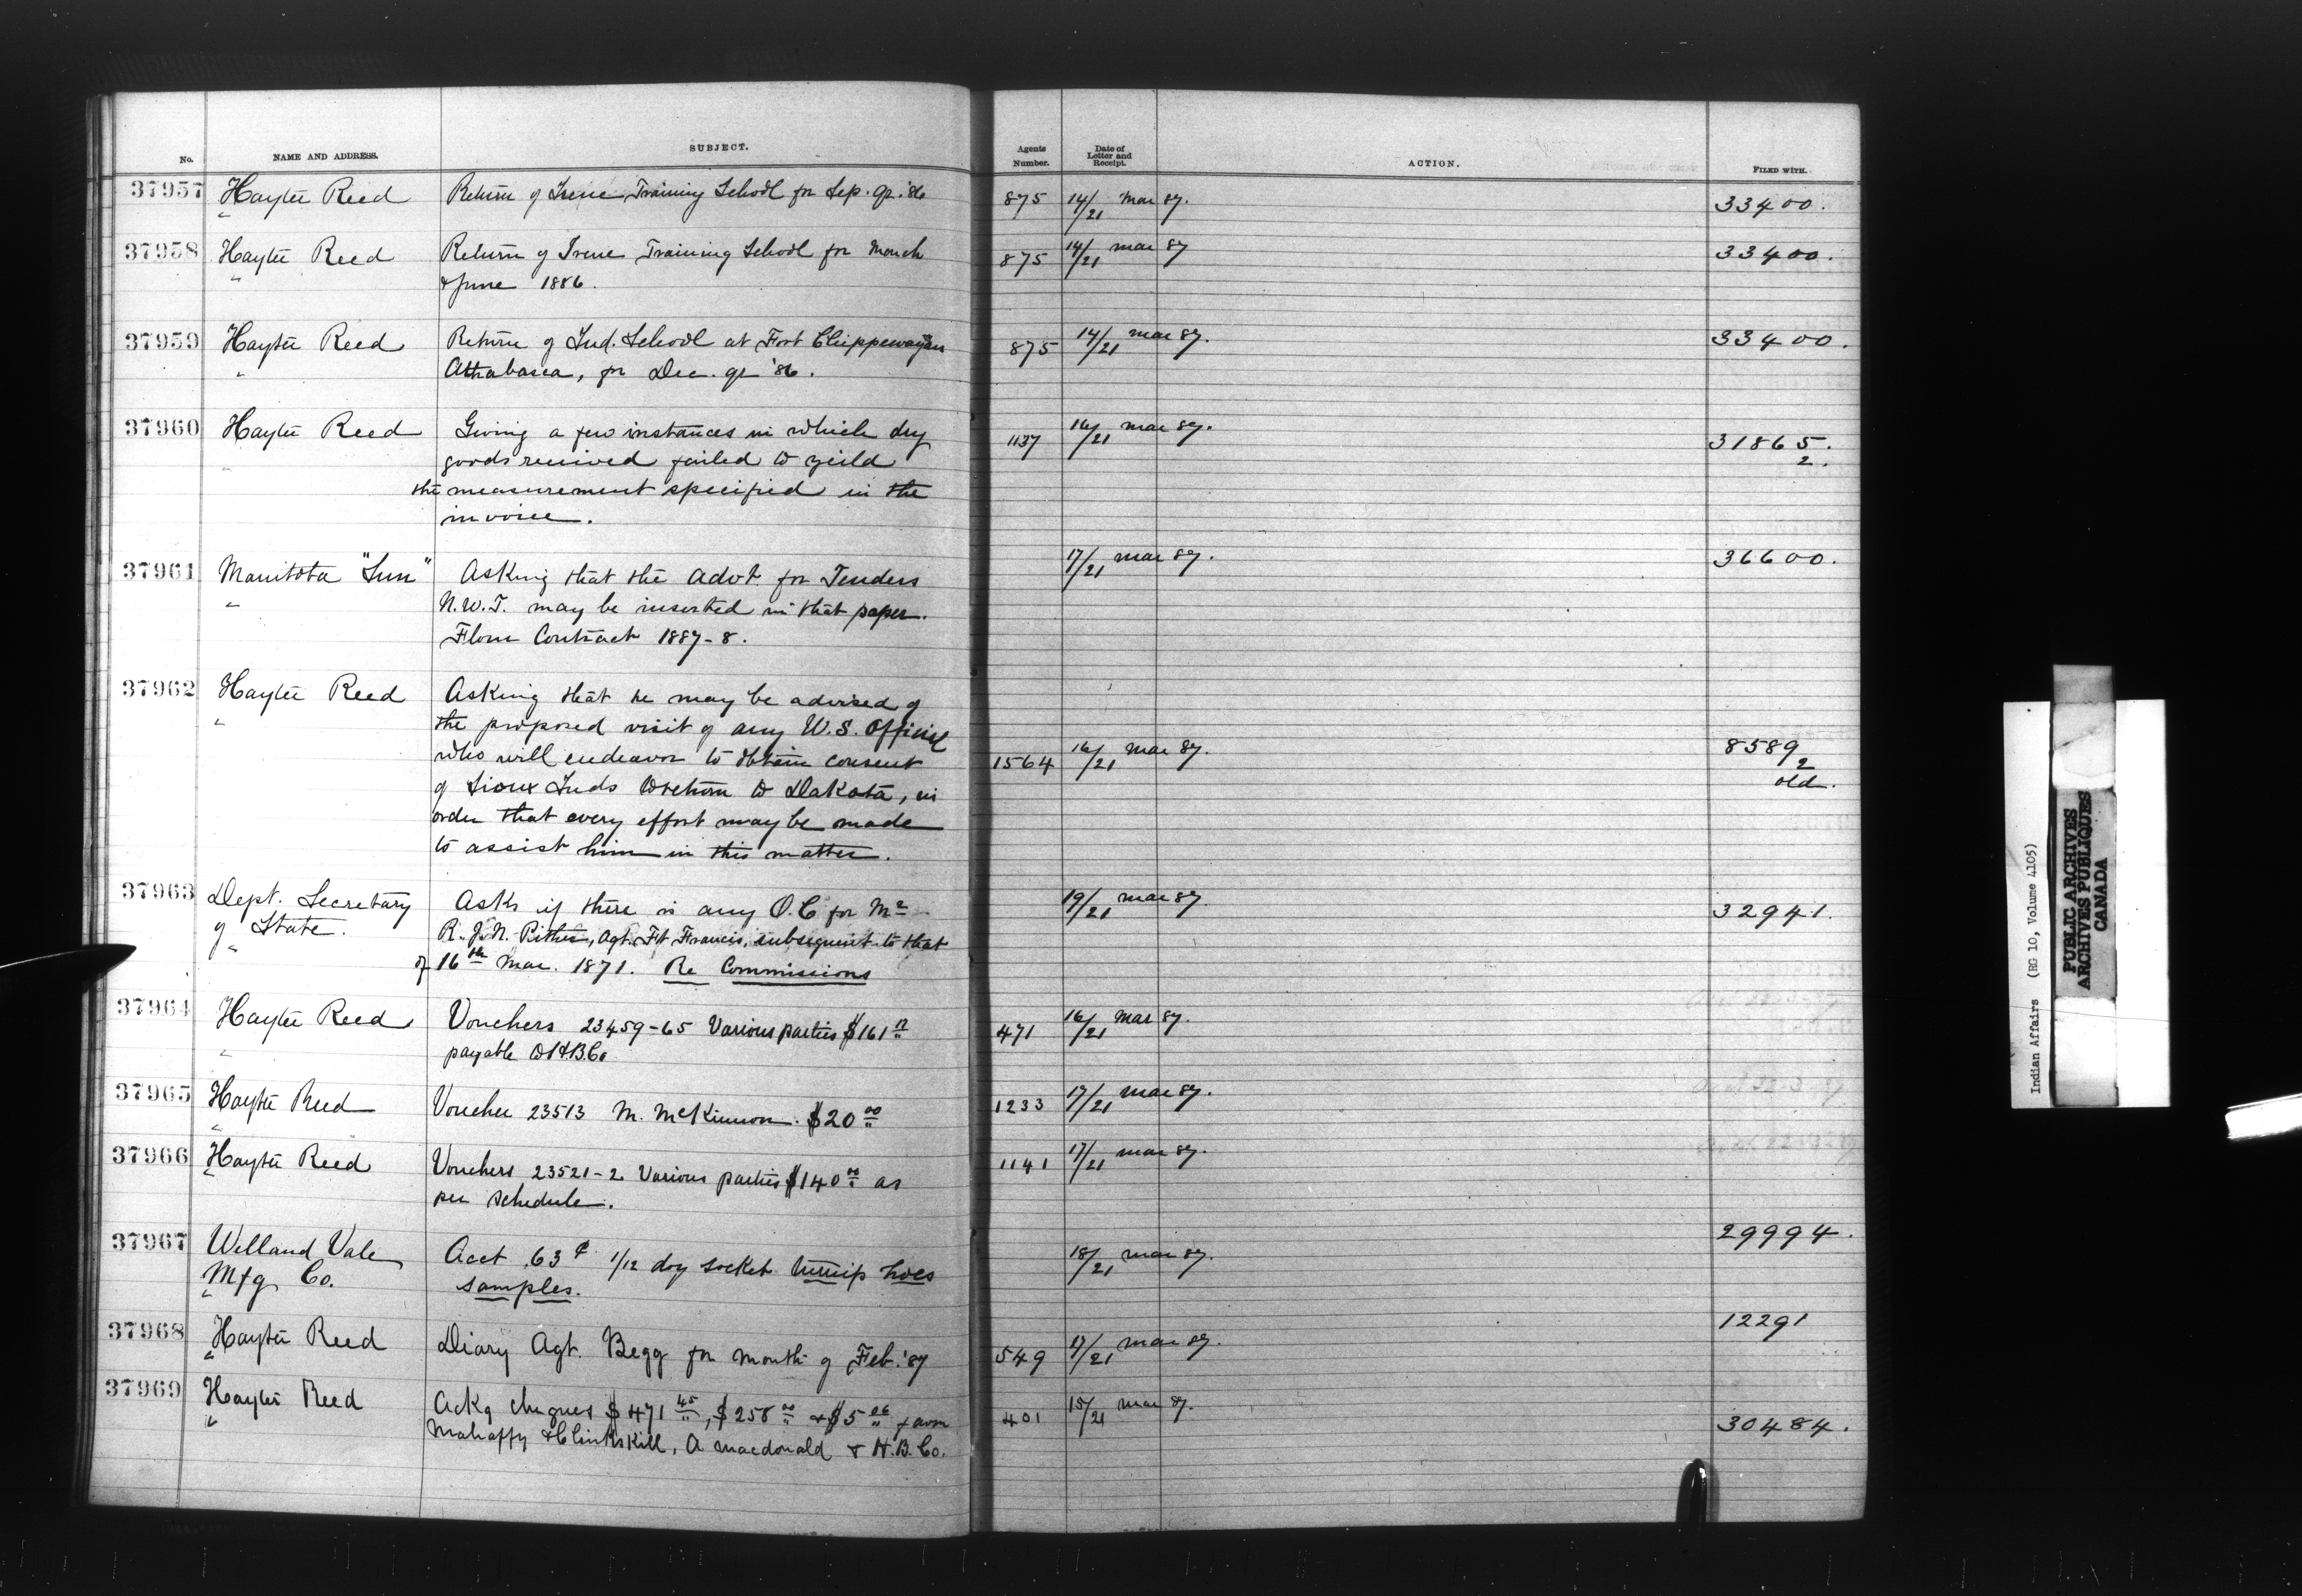 No. NAME AND ADDRESS. SUBJECT. Agents Number. Date of Letter and Receipt. ACTION. FILED WITH.
37957 Hayter Reed Return of Irene Training School for Sep. qr. '86 875 14/21 Mar 87. 33400.
37958 Hayter Reed Return of Irene Training School for March 875 14/21 Mar 87 33400.
" & June 1886.
37959 Hayter Reed Return of Ind. School at Fort Chippewayan 875 14/21 Mar 87. 33400.
" Athabasca, for Dec. qr '86.
37960 Hayter Reed Giving a few instances in which dry 1137 16/21 Mar 87. 31865.
" goods received failed to yield 2.
the measurement specified in the
invoice.
37961 Manitoba "Sun" Asking that the Advt. for Tenders 17/21 Mar 87. 36600.
" N.W.T. may be inserted in that paper.
Flour Contract 1887-8.
37962 Hayter Reed Asking that he may be advised of
" the proposed visit of any U.S. Official
who will endeavor to obtain consent 1564 16/21 Mar 87. 8589
2
of Sioux Inds to return to Dakota, in old.
order that every effort may be made
to assist him in this matter.
37963 Dept. Secretary Asks if there is any O.C for Mr 19/21 Mar 87. 32941.
of State. R. J. N. Pither, Agt. Ft Francis, subsequent to that
" of 16th Mar. 1871. Re Commissions
37964 Hayter Reed Vouchers 23459-65 Various parties $161 471 16/21 Mar 87.
" payable to H.B.Co
37965 Hayter Reed Voucher 23513 M. McKinnon. $20 00 1233 17/21 Mar 87.
37966 Hayter Reed Vouchers 23521-2 Various parties $140 00 as 1141 17/21 Mar 87.
per schedule.
37967 Welland Vale Acct .63¢ 1/12 doz socket turnip hoes 18/21 Mar 87. 29994.
Mfg Co. samples.
37968 Hayter Reed Diary Agt. Begg for month of Feb. '87 549 17/21 Mar 87. 12291
37969 Hayter Reed Ackg cheques $471 45, $258 00 & $5 26 favor 401 15/21 Mar 87. 30484.
" Mahaffy & Clinkskill, A Macdonald & H.B.Co.
Indian Affairs (RG 10, Volume 4105)
PUBLIC ARCHIVES
ARCHIVES PUBLIQUES
CANADA